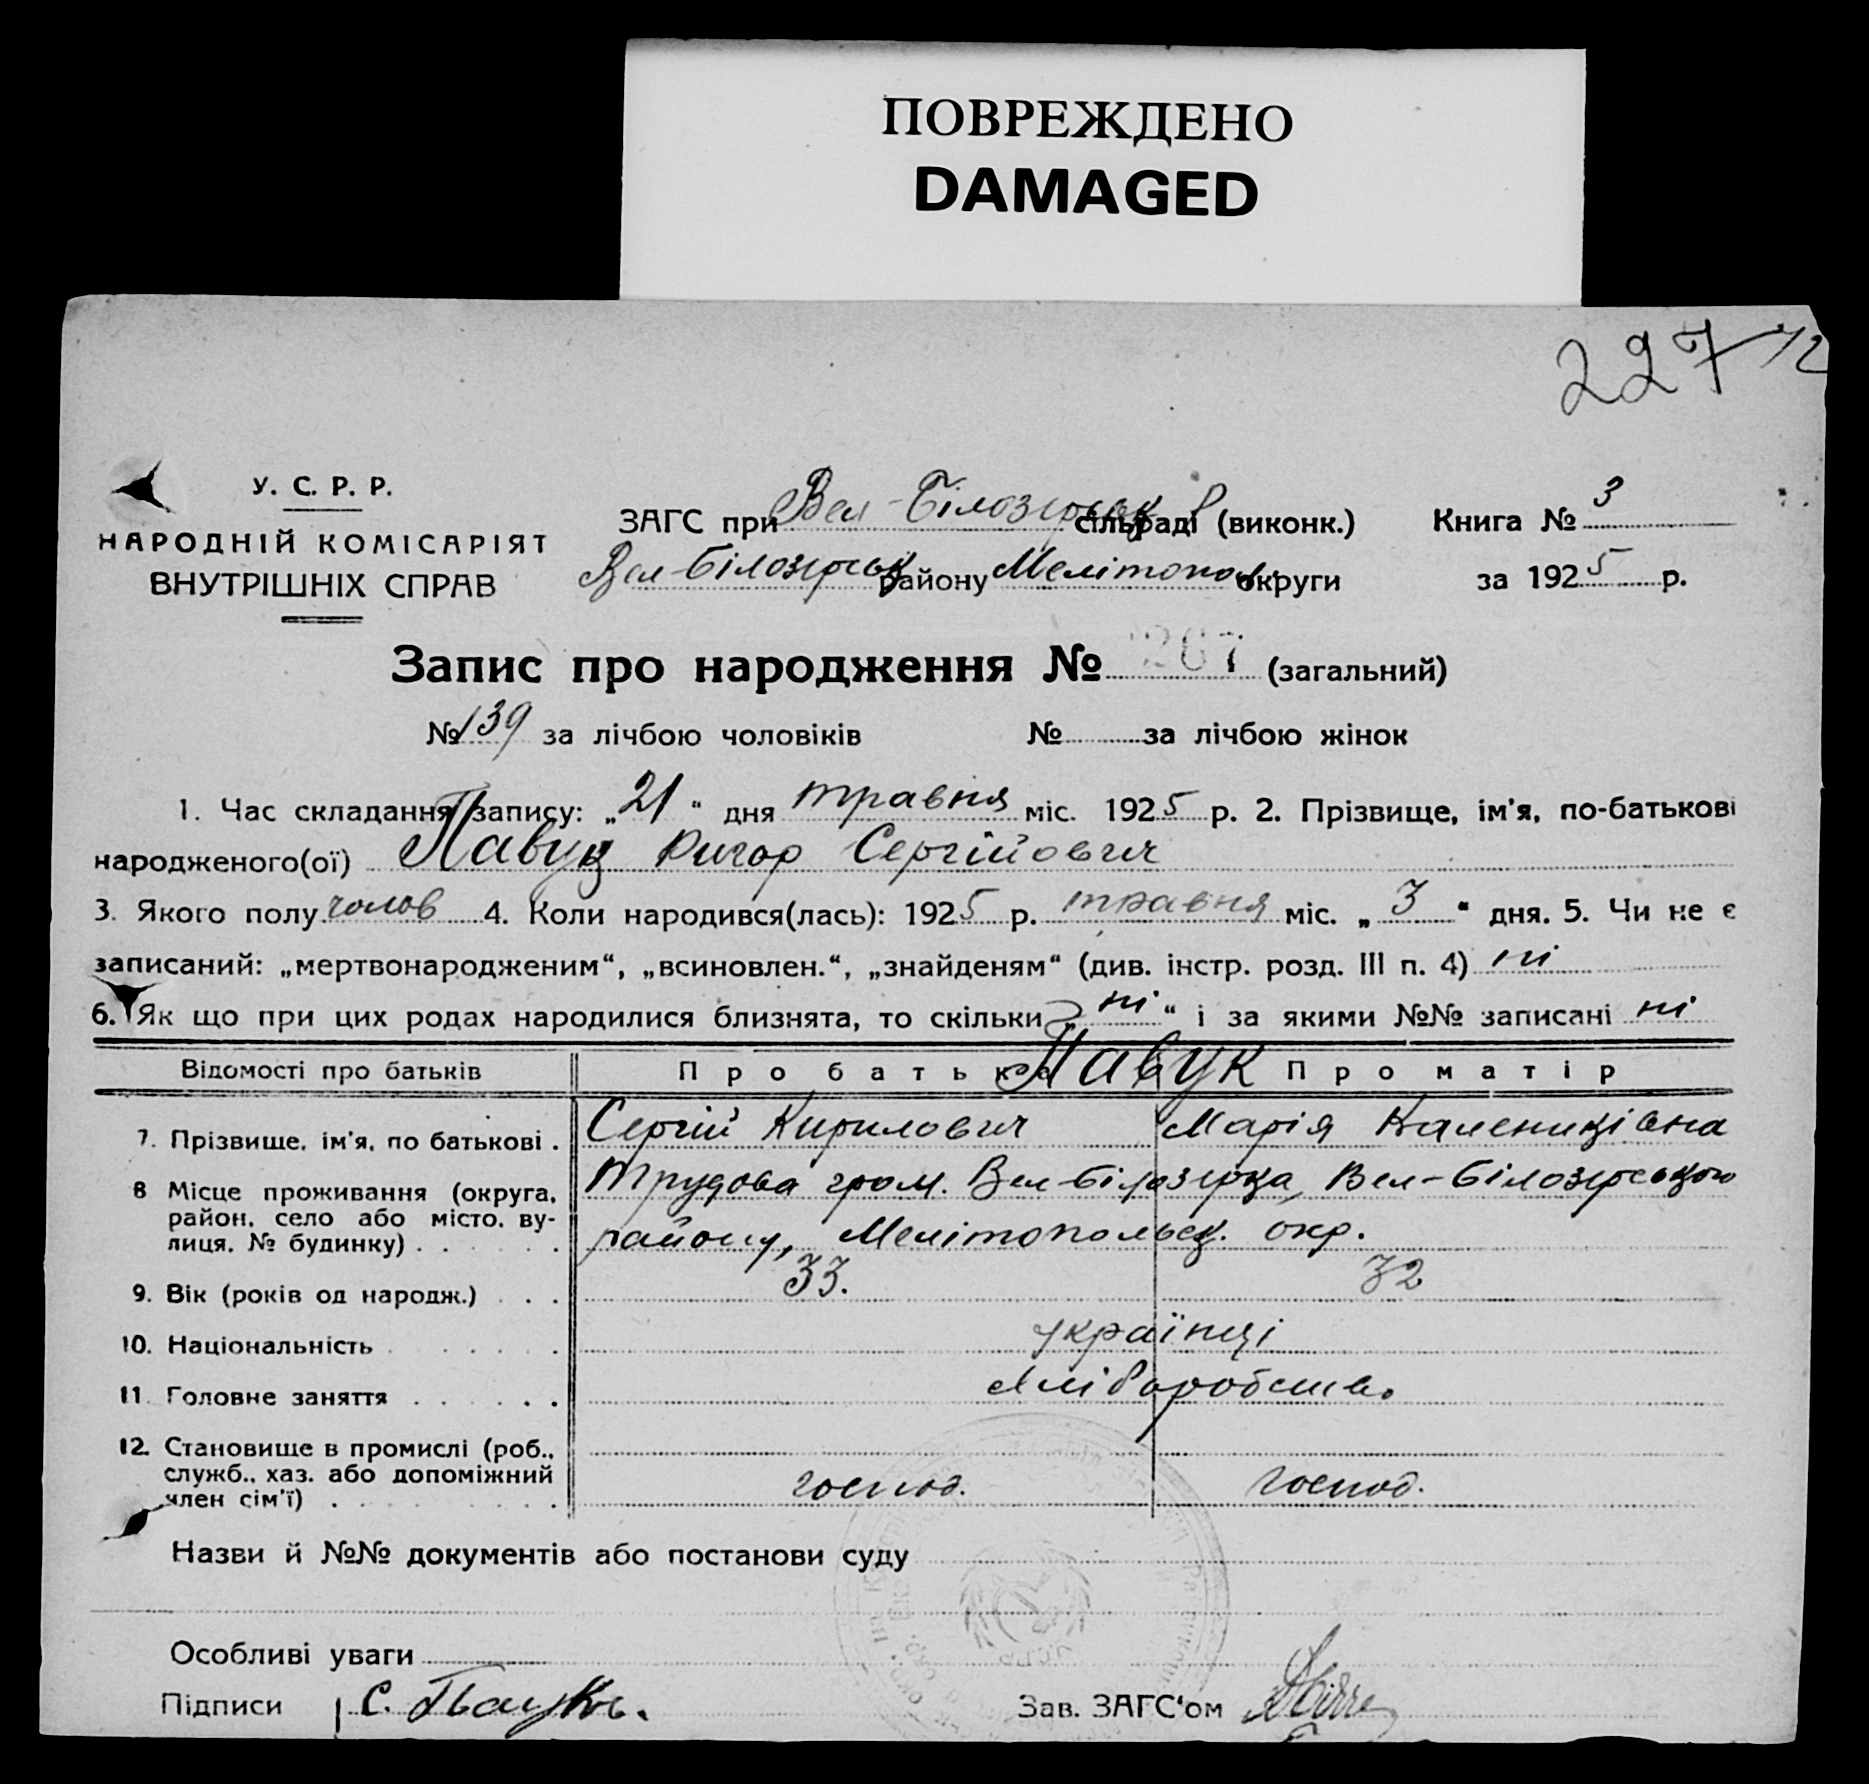 ПОВРЕЖДЕНО
DAMAGED
227
У. С. Р. Р.
НАРОДНІЙ КОМІСАРІЯТ
ВНУТРІШНІХ СПРАВ
ЗАГС при Вел-Білозірськ сільраді (виконк.) Книга № 3
Вел-Білозірськ району Мелітопол. округи за 1925 р.
Запис про народження № 267 (загальний)
№ 139 за лічбою чоловіків № за лічбою жінок
1. Час складання запису: „21“ дня травня міс. 1925 р. 2. Прізвище, ім'я, по-батькові
народженого(ої) Павук Григор Сергійович
3. Якого полу чолов 4. Коли народився(лась): 1925 р. травня міс. „3“ дня. 5. Чи не є
записаний: „мертвонародженим“, „всиновлен.“, „знайденям“ (див. інстр. розд. III п. 4) ні
6. Як що при цих родах народилися близнята, то скільки „ні“ і за якими №№ записані ні
Відомості про батьків Про батька Павук Про матір
7. Прізвище, ім'я, по батькові . Сергій Кирилович Марія Калениківна
8 Місце проживання (округа, район, село або місто, вулиця, № будинку) Трудова гром. Вел-Білозірка, Вел-Білозірського
району, Мелітопольськ. окр.
9. Вік (років од народж.) . . . 33. 32
10. Національність українці
11. Головне заняття хліборобство
12. Становище в промислі (роб.,
служб., хаз. або допоміжний
член сім'ї) господ. господ.
Назви й №№ документів або постанови суду
Особливі уваги
Підписи С. Павук. Зав. ЗАГС'ом